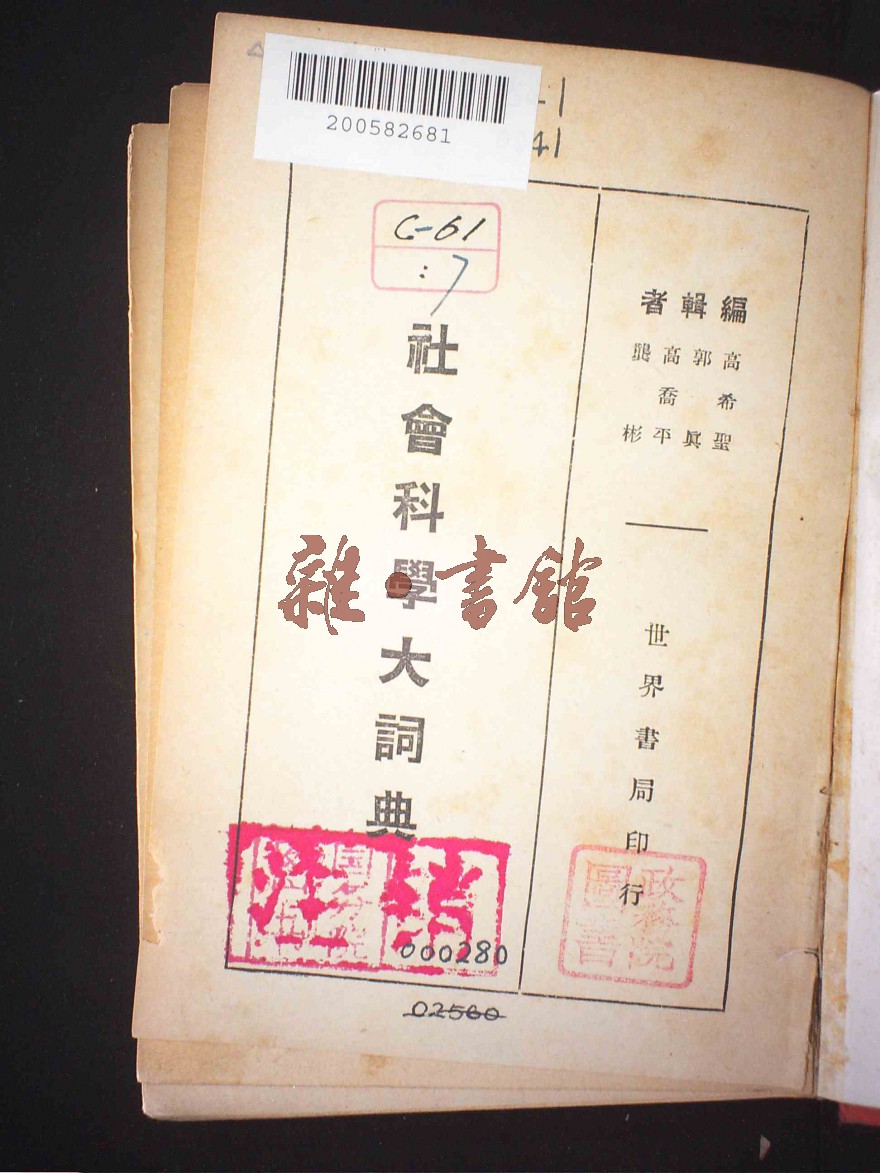 200582681
-1
41
C-61
:7
編輯者
高希聖
郭眞
高喬平
龔彬
世界書局印行
社會科學大詞典
雜·書館
政務院
圖書
注
000280
02560